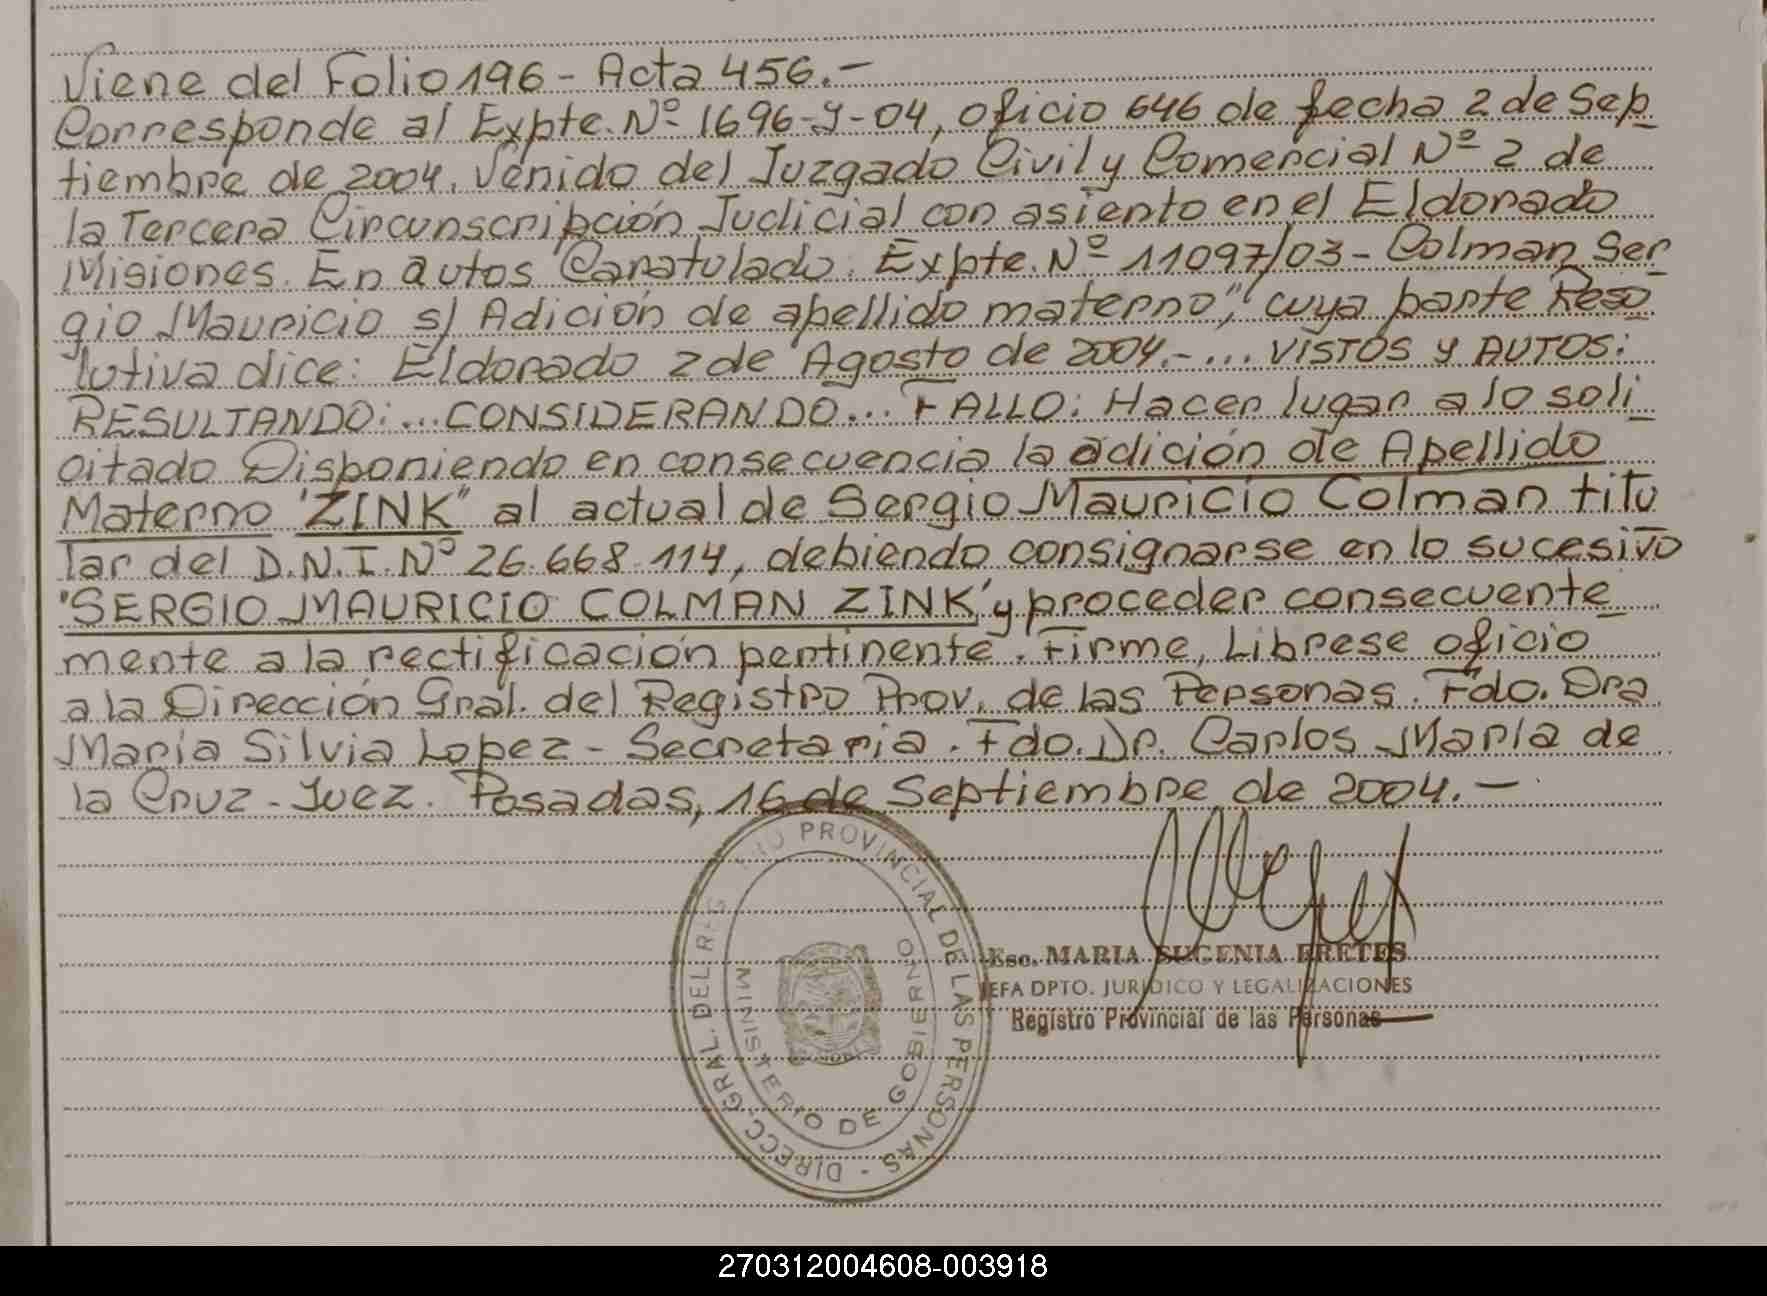 Viene del Folio 196 - Acta 456.-
Corresponde al Expte. Nº 1696-J-04, oficio 646 de fecha 2 de Sep
tiembre de 2004. Venido del Juzgado Civil y Comercial Nº 2 de
la Tercera Circunscripción Judicial con asiento en el Eldorado
Misiones. En autos Caratulado: Expte. Nº 11097/03 - Colman Ser
gio Mauricio s/ Adición de apellido materno", cuya parte Reso
lutiva dice: Eldorado 2 de Agosto de 2004.-... VISTOS Y AUTOS:
RESULTANDO:... CONSIDERANDO... FALLO: Hacer lugar a lo soli
citado Disponiendo en consecuencia la adición de Apellido
Materno "ZINK" al actual de Sergio Mauricio Colman titu
lar del D.N.I. Nº 26.668.114, debiendo consignarse en lo sucesivo
"SERGIO MAURICIO COLMAN ZINK" y proceder consecuente
mente a la rectificación pertinente. Firme, Librese oficio
a la Dirección Gral. del Registro Prov. de las Personas. Fdo. Dra
María Silvia Lopez - Secretaria. Fdo. Dr. Carlos María de
la Cruz - Juez. Posadas, 16 de Septiembre de 2004.-
DIRECC. GRAL. DEL REG PROVINCIAL DE LAS PERSONAS -
MINISTERIO DE GOBIERNO
Esc. MARIA EUGENIA FRETES
JEFA DPTO. JURIDICO Y LEGALIZACIONES
Registro Provincial de las Personas
270312004608-003918